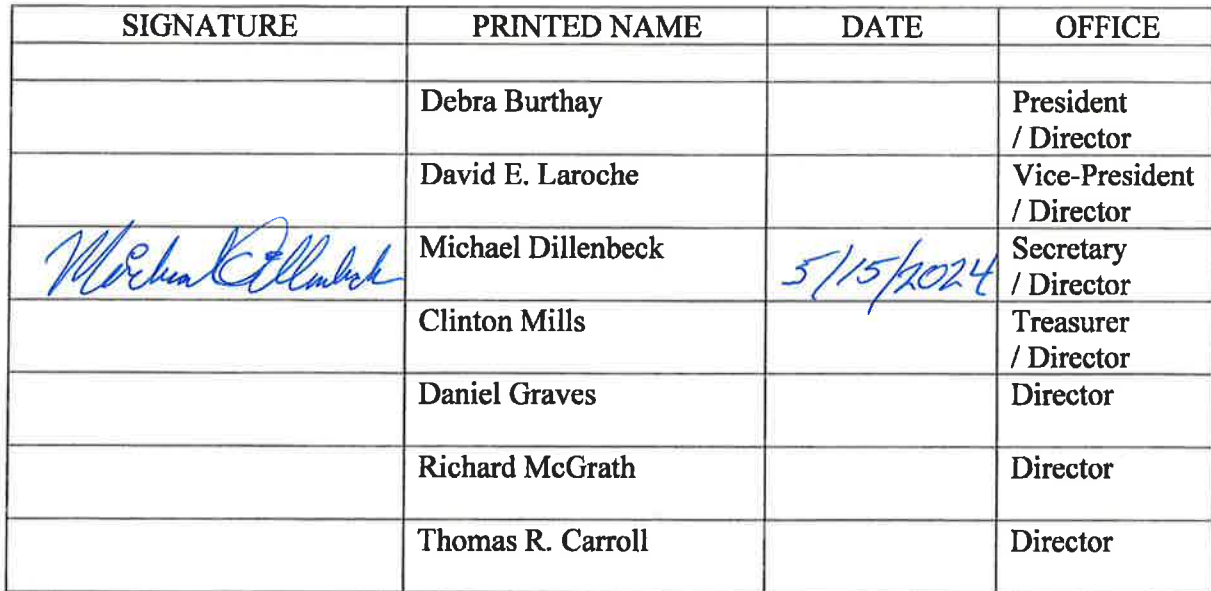 SIGNATURE PRINTED NAME DATE OFFICE
Debra Burthay President
/ Director
David E. Laroche Vice-President
/ Director
Michael Dillenbeck Michael Dillenbeck 5/15/2024 Secretary
/ Director
Clinton Mills Treasurer
/ Director
Daniel Graves Director
Richard McGrath Director
Thomas R. Carroll Director